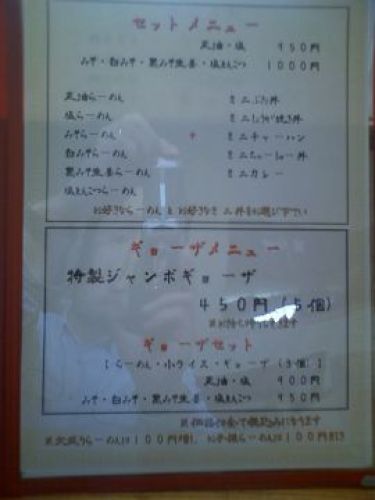 セットメニュー
正油・塩 950円
みそ・白みそ・黒みそ生姜・塩とんこつ 1000円
正油らーめん ミニぶた丼
塩らーめん ミニしょうが焼き丼
みそらーめん + ミニチャーハン
白みそらーめん ミニちゃーしゅー丼
黒みそ生姜らーめん ミニカレー
塩とんこつらーめん
お好きならーめんとお好きなミニ丼をお選び下さい
ギョーザメニュー
特製ジャンボギョーザ
450円(5個)
※お持ち帰りできます
ギョーザセット
[らーめん・小ライス・ギョーザ(3個)]
正油・塩 900円
みそ・白みそ・黒みそ生姜・塩とんこつ 950円
※大盛りらーめんは100円増し
らーめんは100円